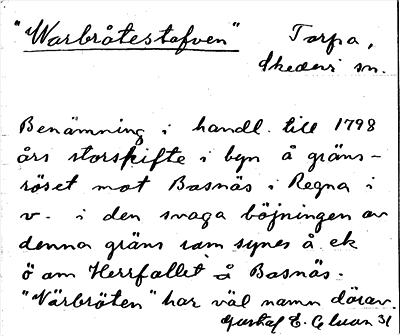 "Warbråtestafven" Torpa,
Skedevi sn.
Benämning i handl. till 1798
års storskifte i byn å gräns-
röset mot Basnäs i Regna i
v. i den svaga böjningen av
denna gräns som synes å ek
ö om Herrfallet å Basnäs.
"Värbröten" har väl namn därav.
Gustaf E.
31